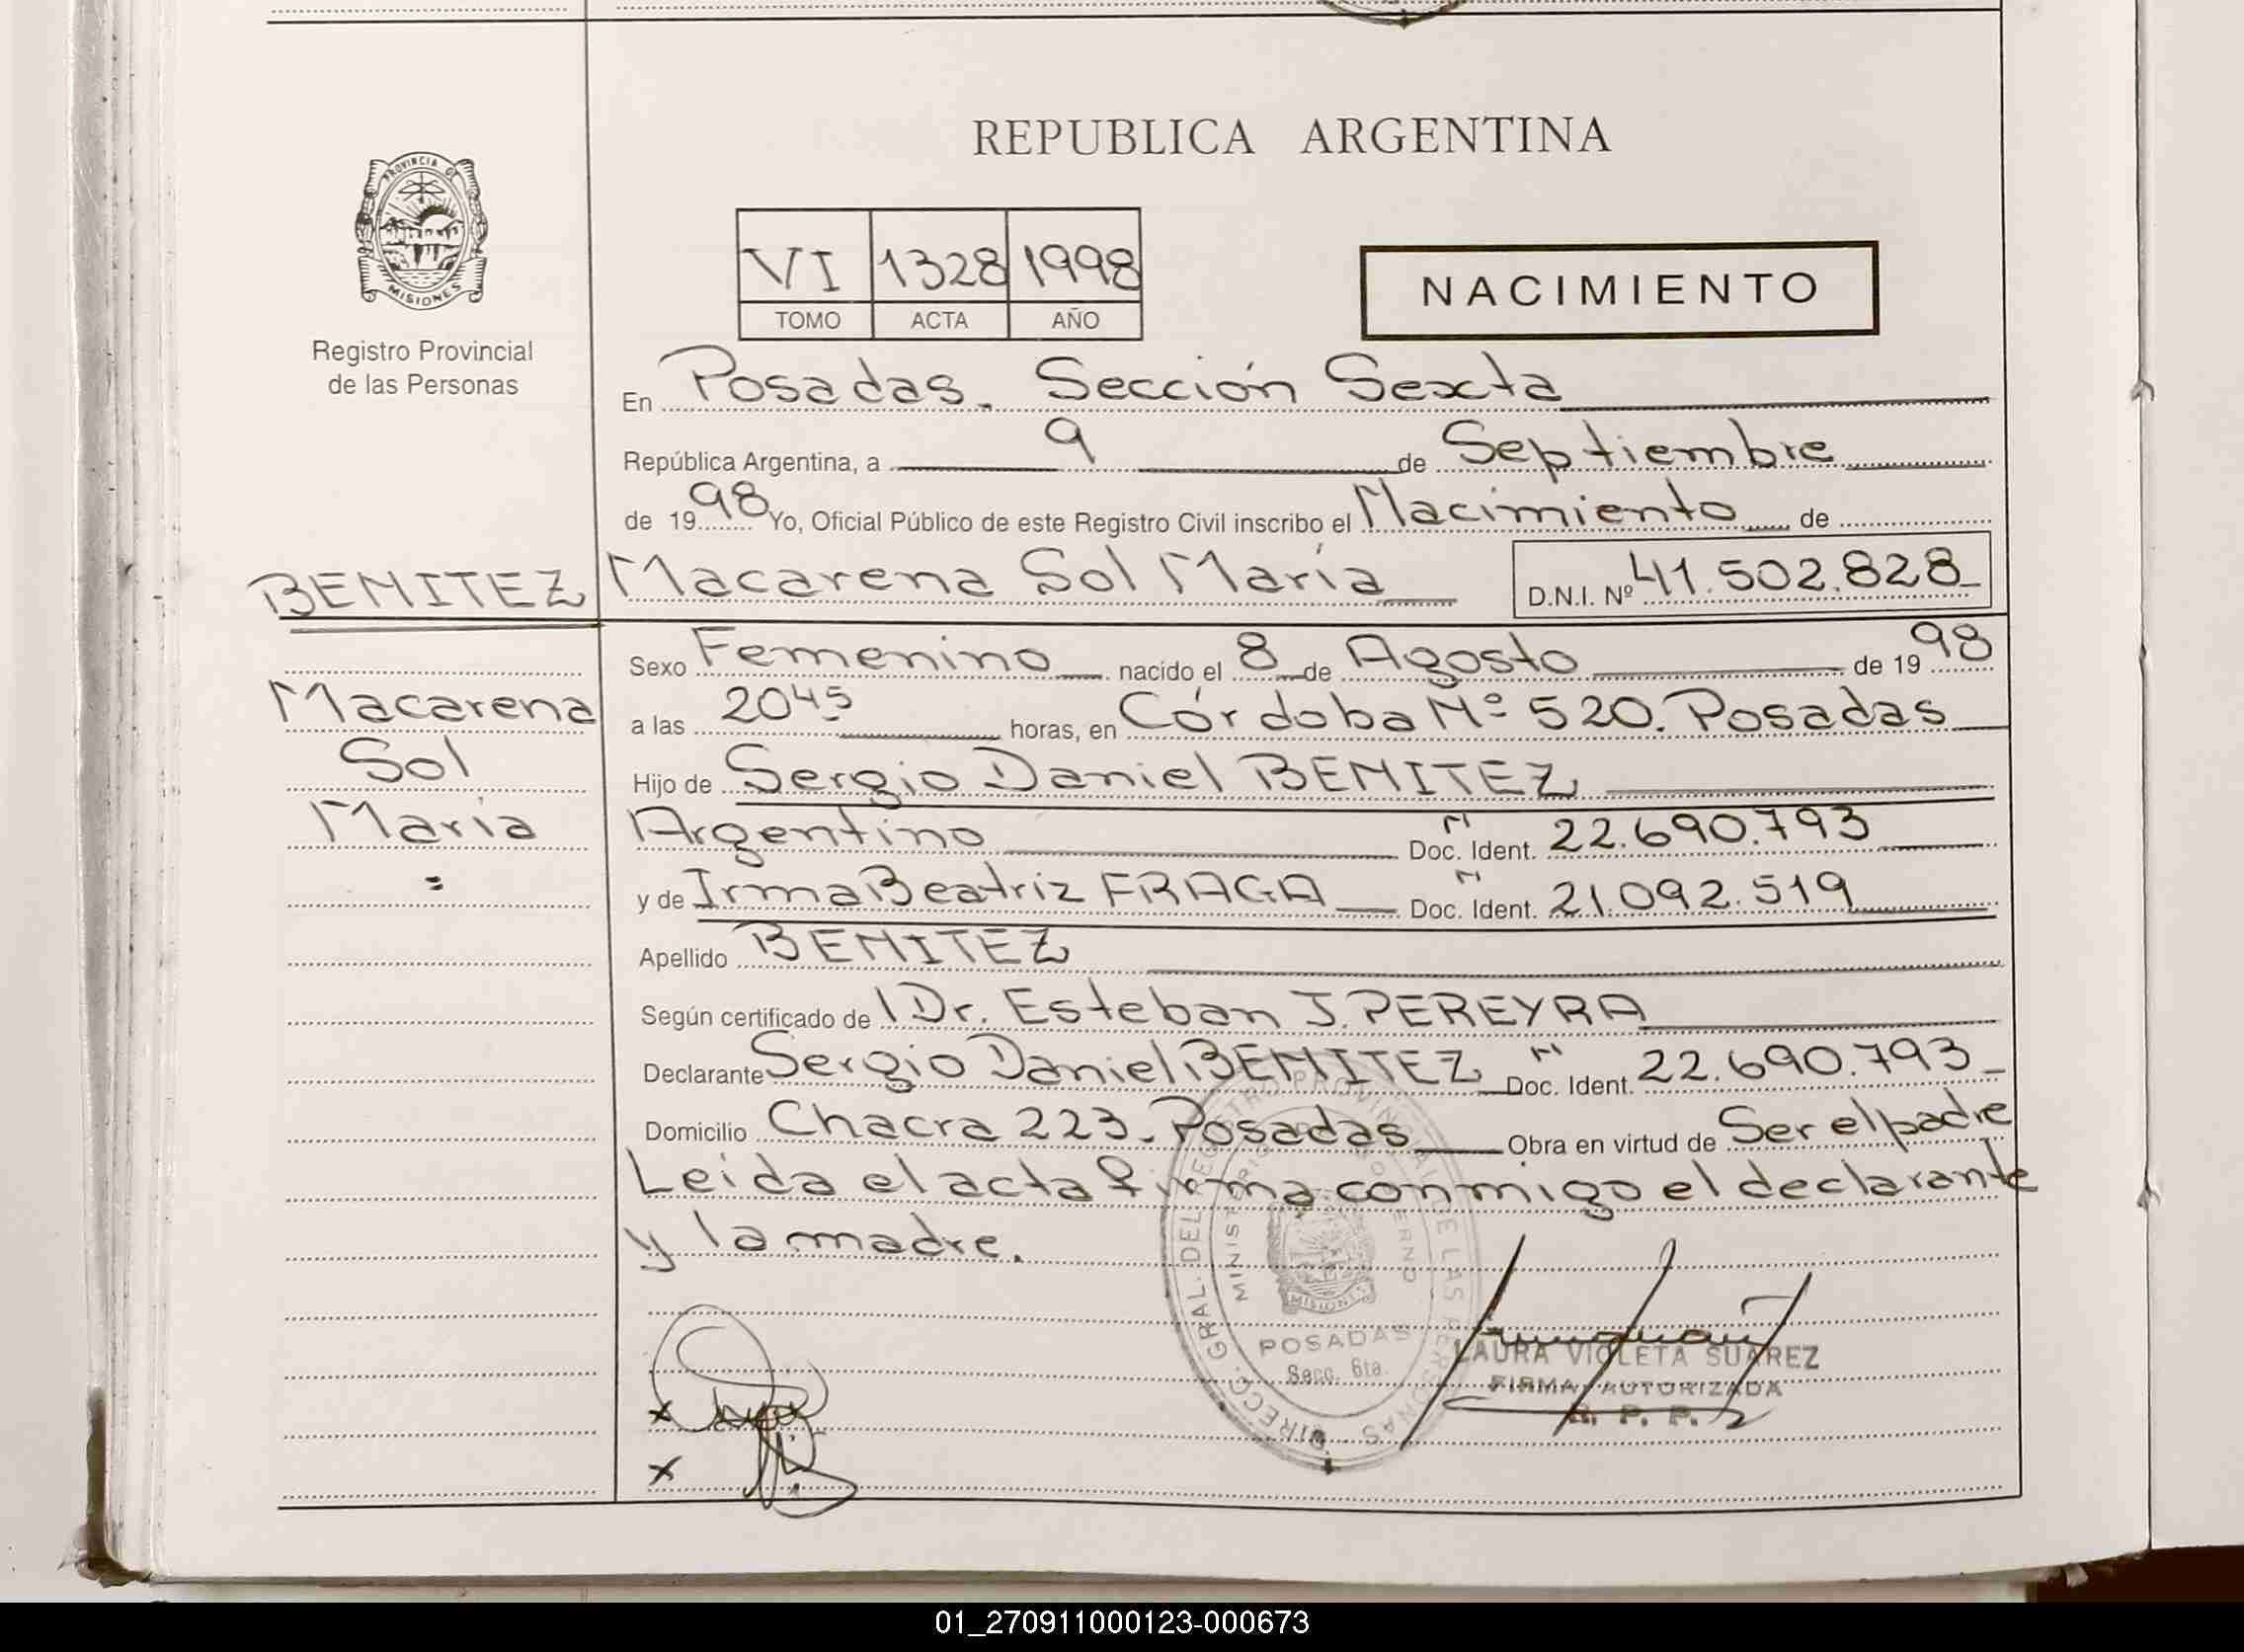 REPUBLICA ARGENTINA
PROVINCIA DE
MISIONES
Registro Provincial
de las Personas
VI 1328 1998
TOMO ACTA AÑO
NACIMIENTO
En Posadas. Sección Sexta
República Argentina, a 9 de Septiembre
de 1998 Yo, Oficial Público de este Registro Civil inscribo el Nacimiento de
BENITEZ Macarena Sol María D.N.I. Nº 41.502.828
Sexo Femenino nacido el 8 de Agosto de 1998
Macarena
a las 20 45 horas, en Córdoba Nº 520. Posadas
Sol
Hijo de Sergio Daniel BENITEZ
María
Argentino Doc. Ident. 22.690.793
y de Irma Beatriz FRAGA Doc. Ident. 21.092.519
Apellido BENITEZ
Según certificado de Dr. Esteban J. PEREYRA
Declarante Sergio Daniel BENITEZ Doc. Ident. 22.690.793
Domicilio Chacra 223. Posadas Obra en virtud de Ser el padre
Leida el acta firma conmigo el declarante
y la madre.
DIRECC. GRAL. DEL REGISTRO PROVINCIAL DE LAS PERSONAS
MINISTERIO DE GOBIERNO
MISIONES
POSADAS
Secc. 6ta.
LAURA VIOLETA SUAREZ
FIRMA AUTORIZADA
R. P. P.
x
x
01_270911000123-000673